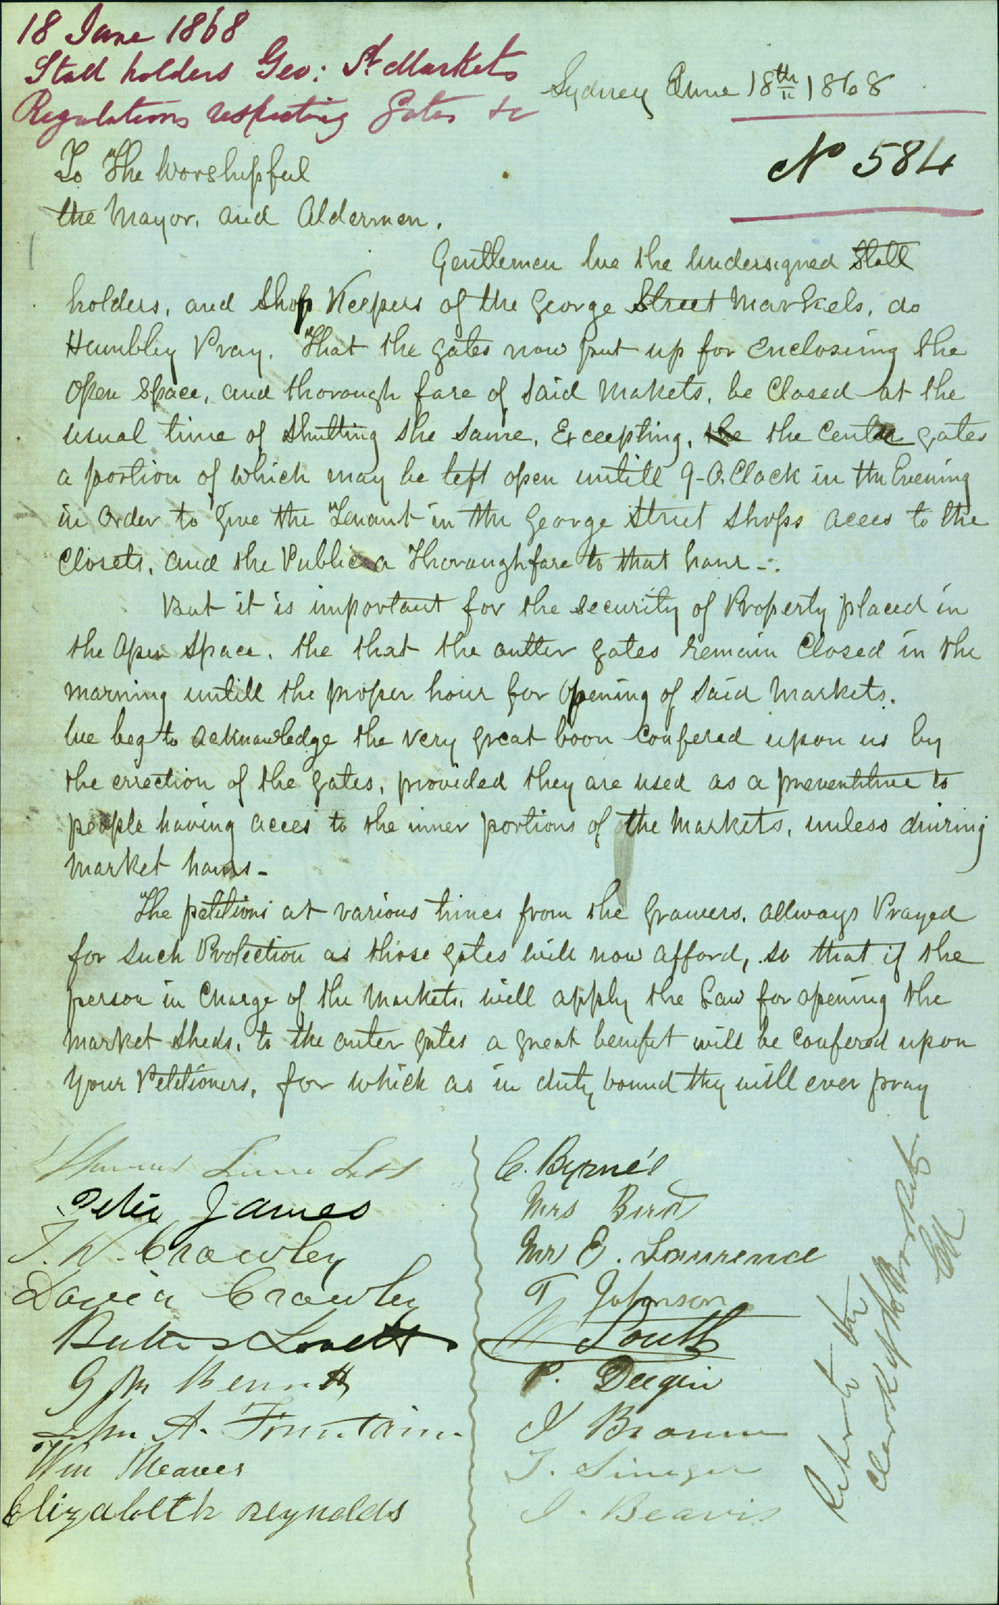 18 June 1868
Stall holders Geo: St Markets
Regulations respecting Gates &c
Sydney June 18th 1868
No 584
To The Worshipful
the Mayor, and Aldermen.
Gentlemen We the Undersigned Stall
holders, and Shop Keepers of the George Street Markets, do
Humbley Pray. That the gates now put up for Encloseing the
Open Space, and thorough fare of Said Makets, be Closed at the
usual time of Shutting the Same, Excepting, the the Center gates
a portion of which may be left open untill 9-O.Clock in the Evening
in Order to give the Tenant in the George Street Shops acces to the
Closets, and the Public a Thoroughfare to that hour -.
But it is important for the Security of Property placed in
the Open Space, the that the outter gates Remain Closed in the
morning untill the proper hour for Opening of Said Markets.
We beg to acknowledge the very great boon Confered upon us by
the errection of the gates, provided they are used as a preventitive to
people having acces to the inner portions of the Markets, unless during
Market hours-
The petitions at various times from the Growers, allways Prayed
for Such Protection as those gates will now afford, so that if the
person in Charge of the Markets, will apply the Law for opening the
Market Sheds, to the outer gates a great benefit will be Confered upon
Your Petitioners, for which as in duty bound they will ever pray
Peter James
T. W. Crowley
David Crowley
Lovett
G Bennett
John A. Fountain
Wm Meaves
Elizabeth Reynolds
C. Byrne's
Mrs Bird
Mr E. Lawrence
T Johnson
W South
P. Deegin
J Brown
T. Siniger
J. Beavis
Refer to the
Clerk of the Markets